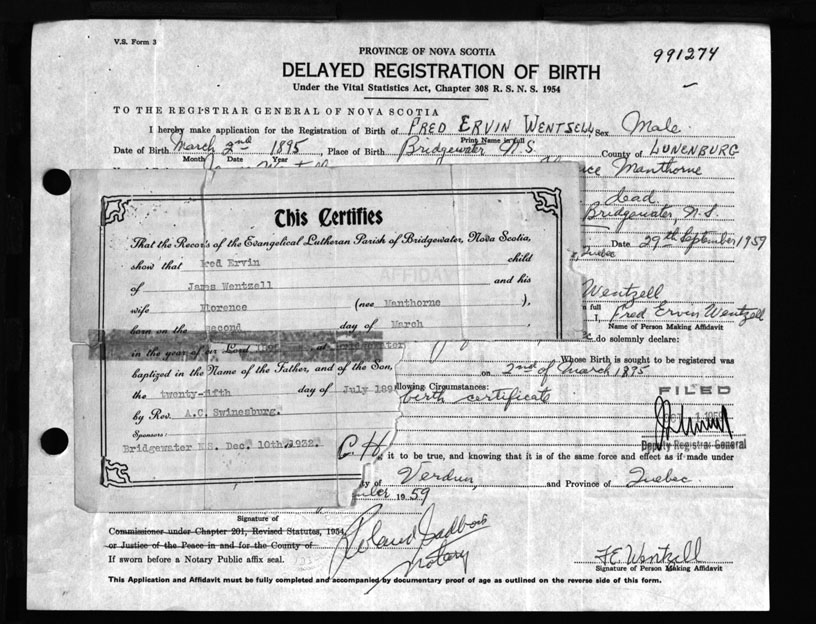 V.S. Form 3
PROVINCE OF NOVA SCOTIA
991274
DELAYED REGISTRATION OF BIRTH
Under the Vital Statistics Act, Chapter 308 R. S. N. S. 1954
TO THE REGISTRAR GENERAL OF NOVA SCOTIA
I hereby make application for the Registration of Birth of FRED ERVIN WENTSELL Sex Male
Print Name in full
Date of Birth March 2nd 1895, Place of Birth Bridgewater N.S. County of LUNENBURG
Month Date Year
Manthorne
dead
Bridgewater, N.S.
Quebec Date 29th September 1959
This Certifies
That the Records of the Evangelical Lutheran Parish of Bridgewater, Nova Scotia,
show that Fred Ervin child
AFFIDAV
of James Wentzell and his
Wentzell
wife Florence (nee Manthorne ),
full
I, Fred Ervin Wentzell
Name of Person Making Affidavit
born on the second day of March
do solemnly declare:
in the year of our Lord at
Whose Birth is sought to be registered was
baptized in the Name of the Father, and of the Son,
on 2nd of March 1895
the twenty-fifth day of July 189
llowing Circumstances:
birth certificate
FILED
by Rev. A.C. Swinesburg.
Sponsors:
Deputy Registrar General
Bridgewater N.S. Dec. 10th, 1932.
C.H.
it to be true, and knowing that it is of the same force and effect as if made under
ty of Verdun, and Province of Quebec
1959
Signature of
Commissioner under Chapter 201, Revised Statutes, 1954
or Justice of the Peace in and for the County of
Roland Gadbois
Notary
If sworn before a Notary Public affix seal.
F.E. Wentzell
Signature of Person Making Affidavit
This Application and Affidavit must be fully completed and accompanied by documentary proof of age as outlined on the reverse side of this form.